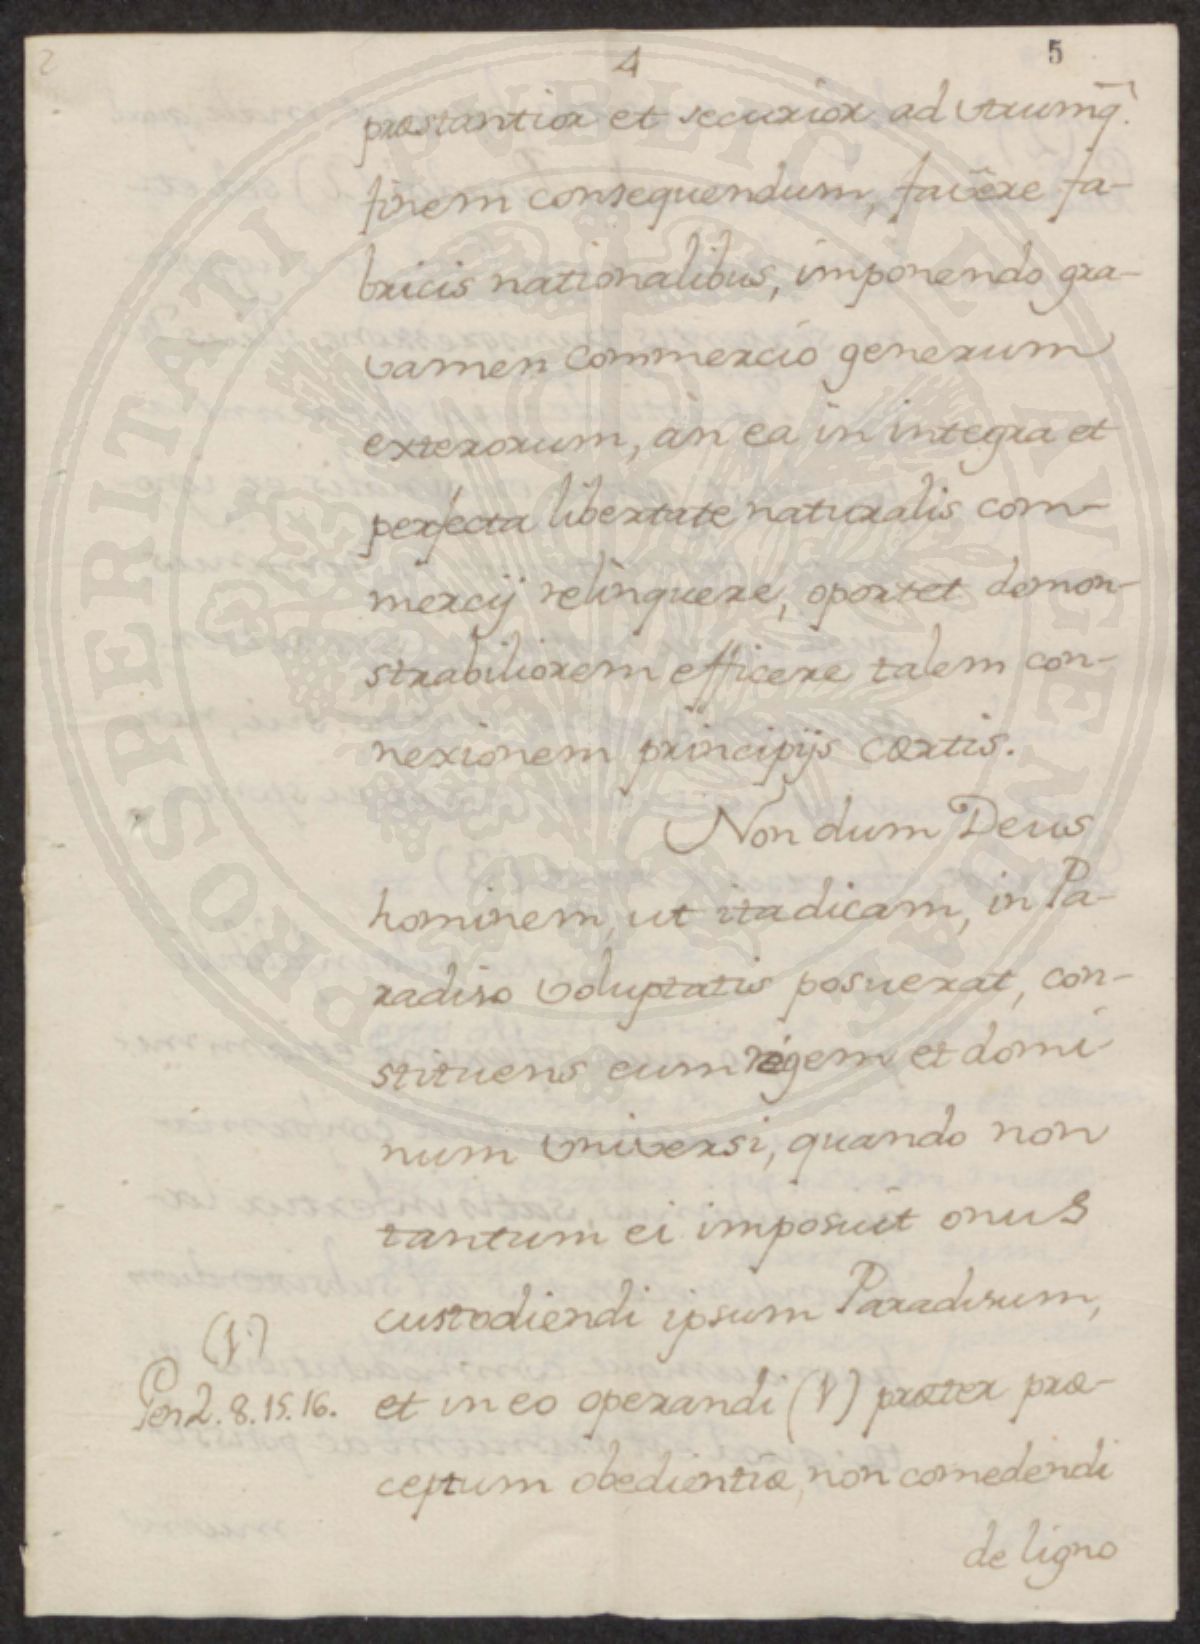 4
5
præstantior et securior ad vtrumq̃.
finem consequendum, favere fa-
bricis nationalibus, imponendo gra-
vamen commercio generum
exterorum, àn ea in integra et
perfecta libertate naturalis com-
mercij relinquere, oportet demon-
strabiliorem efficere talem con-
nexionem principijs cærtis.
Non dum Deus
hominem, ut ita dicam, in Pa-
radiso voluptatis posuerat, con-
stituens eum regem et domi-
num universi, quando non
tantum ei imposuit onus
custodiendi ipsum Paradisum,
et in eo operandi (1) præter præ-
ceptum obedientiæ, non comedendi
de ligno
(1.)
Gen 2. 8. 15. 16.
PROSPERITATI PVBLICAE AVGENDAE